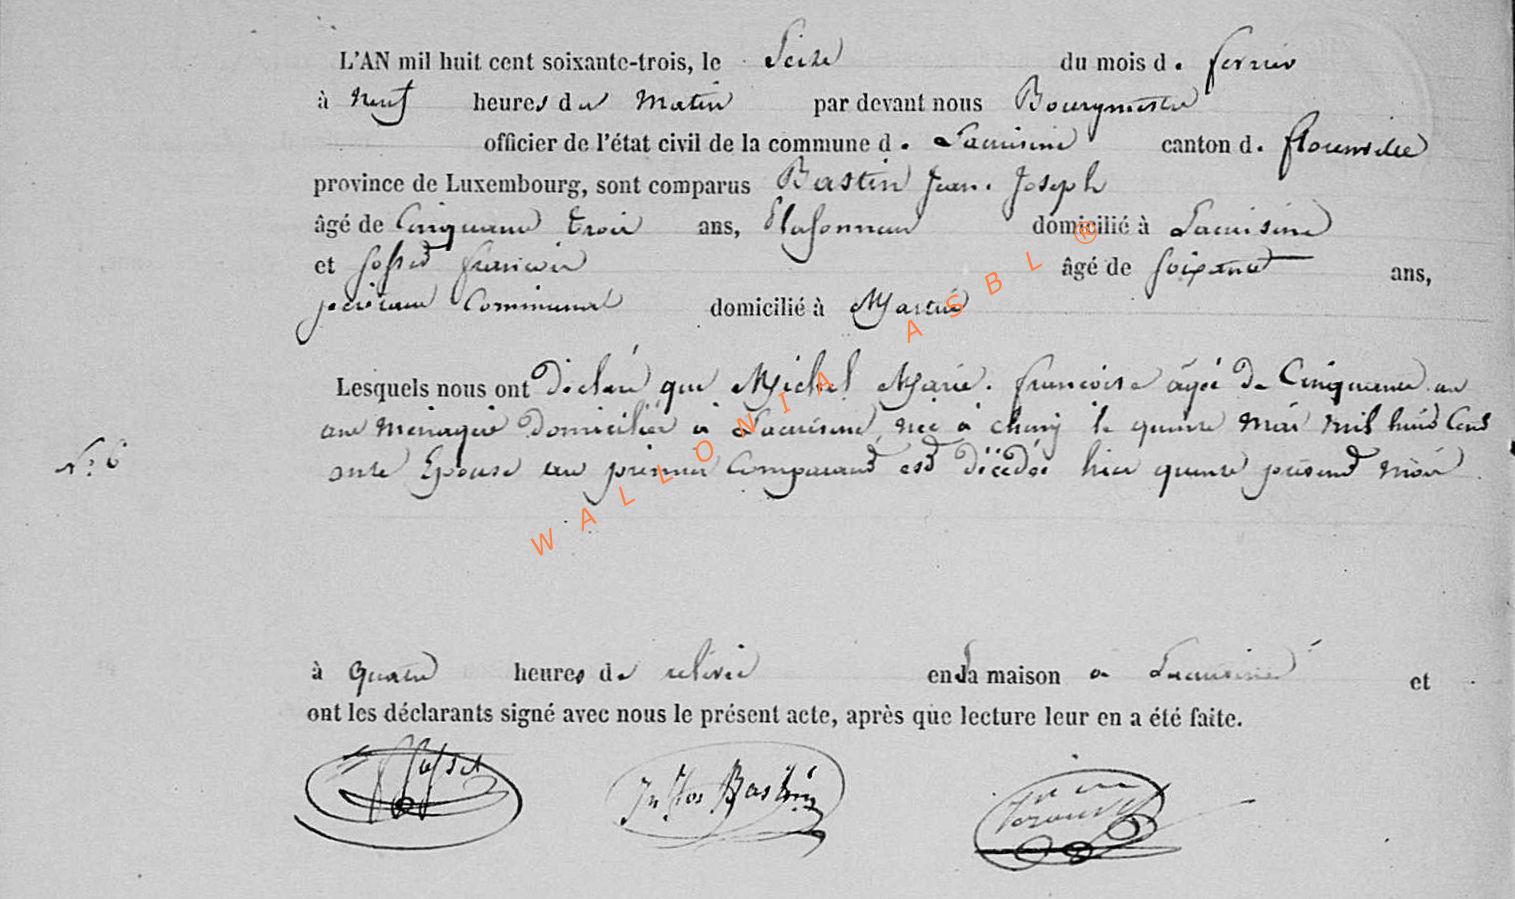 L'AN mil huit cent soixante-trois, le Seize du mois d. fevrier
à Neuf heures du Matin par devant nous Bourgmestre
officier de l'état civil de la commune d. Lacuisine canton d. florenville
province de Luxembourg, sont comparus Bastin Jean. Joseph
âgé de Cinquante trois ans, Plafonneur domicilié à Lacuisine
et Gofset francois âgé de soixante ans,
secrétaire Communal domicilié à Martué
Lesquels nous ont déclaré que Michel Marie. francoise agée de Cinquante un
ans menagère domiciliée à Lacuisine, née à chiny le quinze Mai mil huit Cent
N° 6
onze Epouse au premier Comparant est décédée hier quinze présent mois
à quatre heures de relevée en la maison a Lacuisine et
ont les déclarants signé avec nous le présent acte, après que lecture leur en a été faite.
Gofset Jn Jos Bastin
WALLONIA ASBL ®